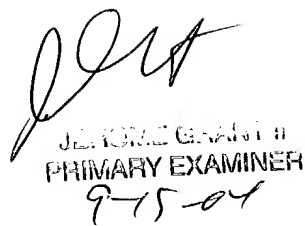 JEROME GRANT II
PRIMARY EXAMINER
9-15-04